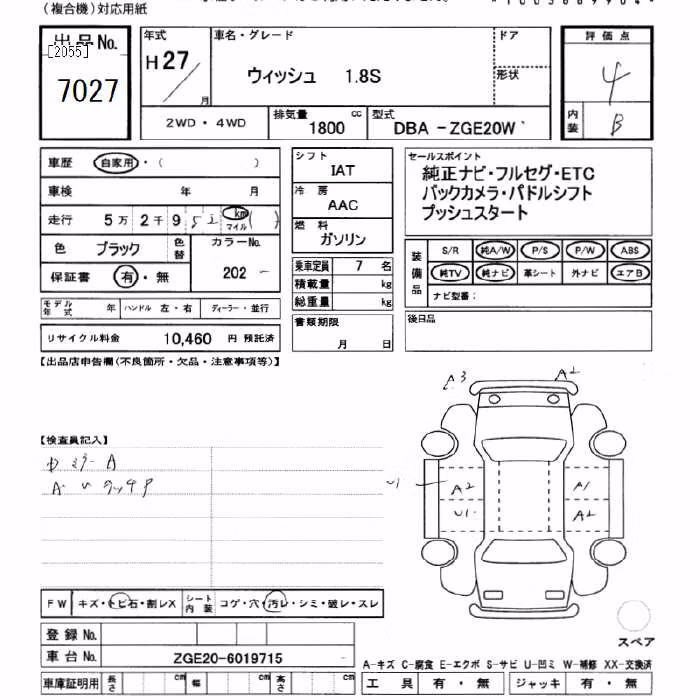 (複合機)対応用紙
出品No.
[2055]
7027
年式
H27
月
車名・グレード
ウィッシュ 1.8S
ドア
形状
評価点
4
内装
B
2WD・4WD
排気量
1800
cc
型式
DBA-ZGE20W
車歴 自家用・( )
車検 年 月
走行 5万2千9
km
マイル
色 ブラック
色替
カラーNo.
202
保証書 有・無
シフト
IAT
冷房
AAC
燃料
ガソリン
乗車定員 7 名
積載量 kg
総重量 kg
書類期限
月 日
セールスポイント
純正ナビ・フルセグ・ETC
バックカメラ・パドルシフト
プッシュスタート
装備品
S/R 純A/W P/S P/W ABS
純TV 純ナビ 革シート 外ナビ エアB
ナビ型番:
後日品
モデル年式 年 ハンドル 左・右 ディーラー・並行
リサイクル料金 10,460 円 預託済
【出品店申告欄(不良箇所・欠品・注意事項等)】
【検査員記入】
ミラー A
A・U タッチP
A3
A2
U1
A2
A1
U1
A2
FW キズ・トビ石・割レX
シート内装
コゲ・穴・汚レ・シミ・破レ・スレ
登録No.
車台No. ZGE20-6019715
車庫証明用 長さ cm 幅 cm 高さ cm
スペア
A-キズ C-腐食 E-エクボ S-サビ U-凹ミ W-補修 XX-交換済
工具 有・無 ジャッキ 有・無